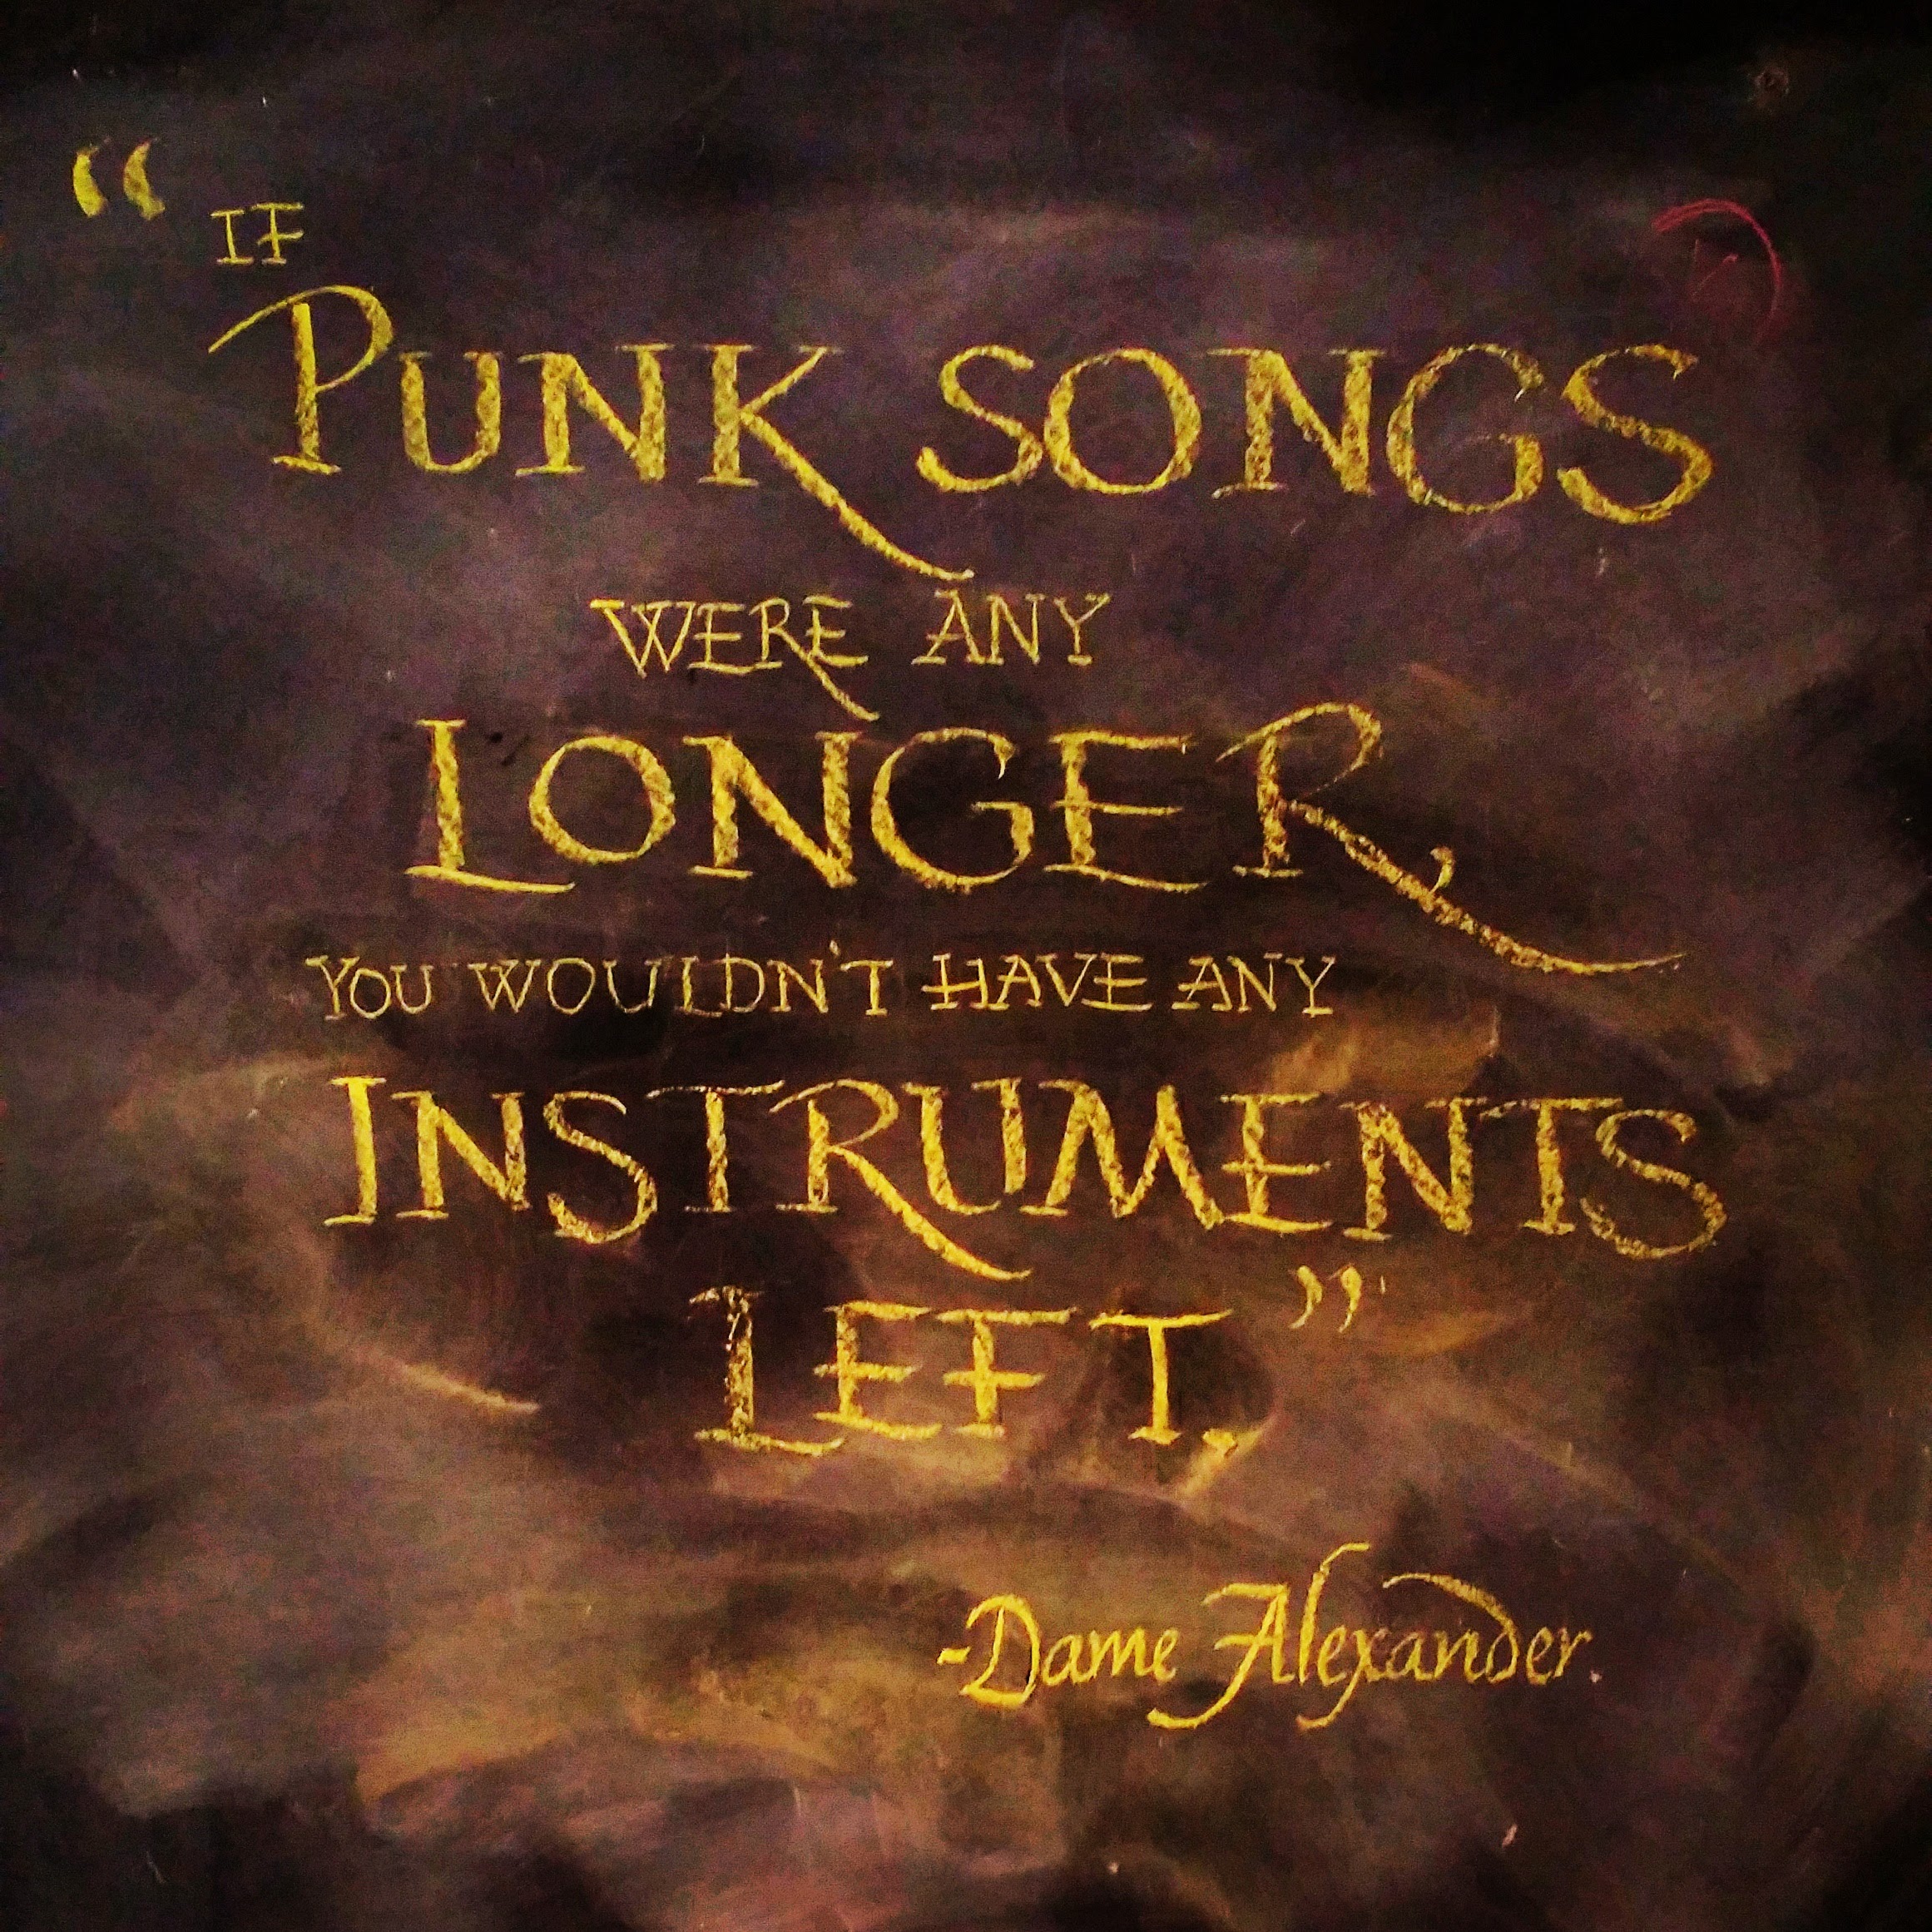 “ IF
PUNK SONGS
WERE ANY
LONGER,
YOU WOULDN'T HAVE ANY
INSTRUMENTS
LEFT.”
-Dame Alexander.